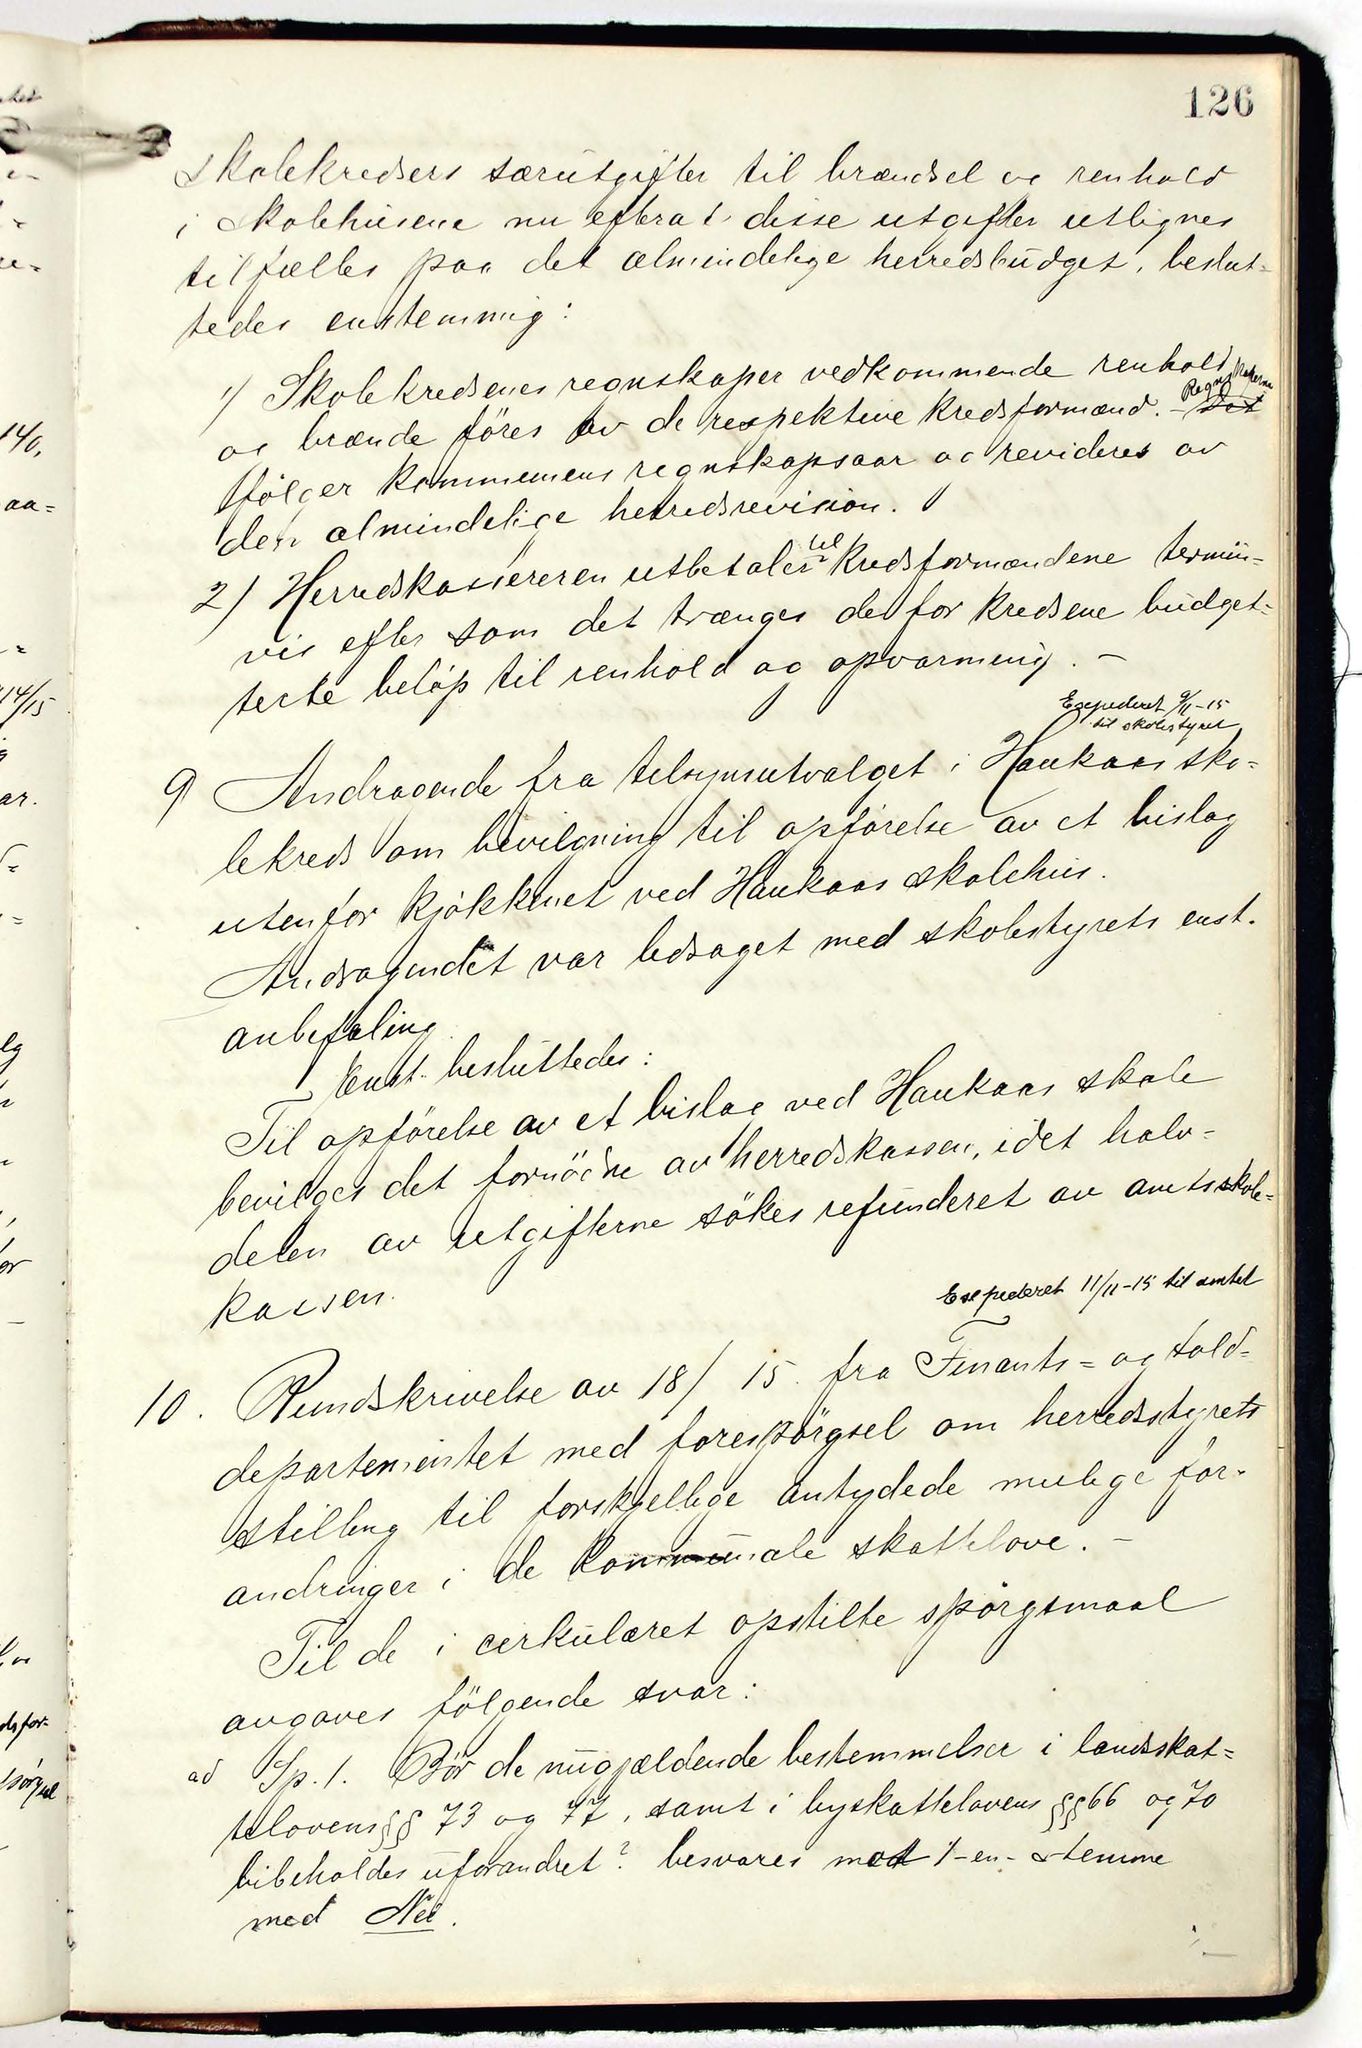 126
skolekredsers særutgifter til brændsel og renhold
i skolehusene nu efterat disse utgifter utlignes
tilfælles paa det almindelige herredsbudget, beslut-
tedes enstemmig:
1) Skolekredsenes regnskaper vedkommende renhold
og brænde föres av de respektive kredsformænd. - Regnskaperne
fölger kommunens regnskapsaar og revideres av
den almindelige herredsrevision.
2) Herredskassereren utbetaler til kredsformændene termin-
vis efter som det trænges de for kredsene budget-
terte belöp til renhold og opvarming. -
Expederet 9/11-15
til skolestyret
9 Andragende fra tilsynsutvalget i Haukaas sko-
lekreds om bevilgning til opförelse av et bislag
utenfor kjökkenet ved Haukaas skolehus.
Andragendet var ledsaget med skolestyrets enst.
anbefaling.
Enst. besluttedes:
Til opförelse av et bislag ved Haukaas skole
bevilges det fornödne av herredskassen, idet halv-
delen av utgifterne sökes refunderet av amtsskole-
kassen.
Expederet 11/11-15 til amtet
10. Rundskrivelse av 18/ 15. fra Finants- og told-
departementet med forespörgsel om herredsstyrets
stilling til forskjellige antydede mulige for-
andringer i de kommunale skattelove. -
Til de i cirkulæret opstilte spörgsmaal
avgaves fölgende svar:
ad Sp. 1. Bör de nugjældende bestemmelser i landsskat-
telovens §§ 73 og 77, samt i byskattelovens §§ 66 og 70
bibeholdes uforandret? besvares mot 1 - en - stemme
med Nei.
140,
aa=
14/15
ar.
lg
for
dsfor-